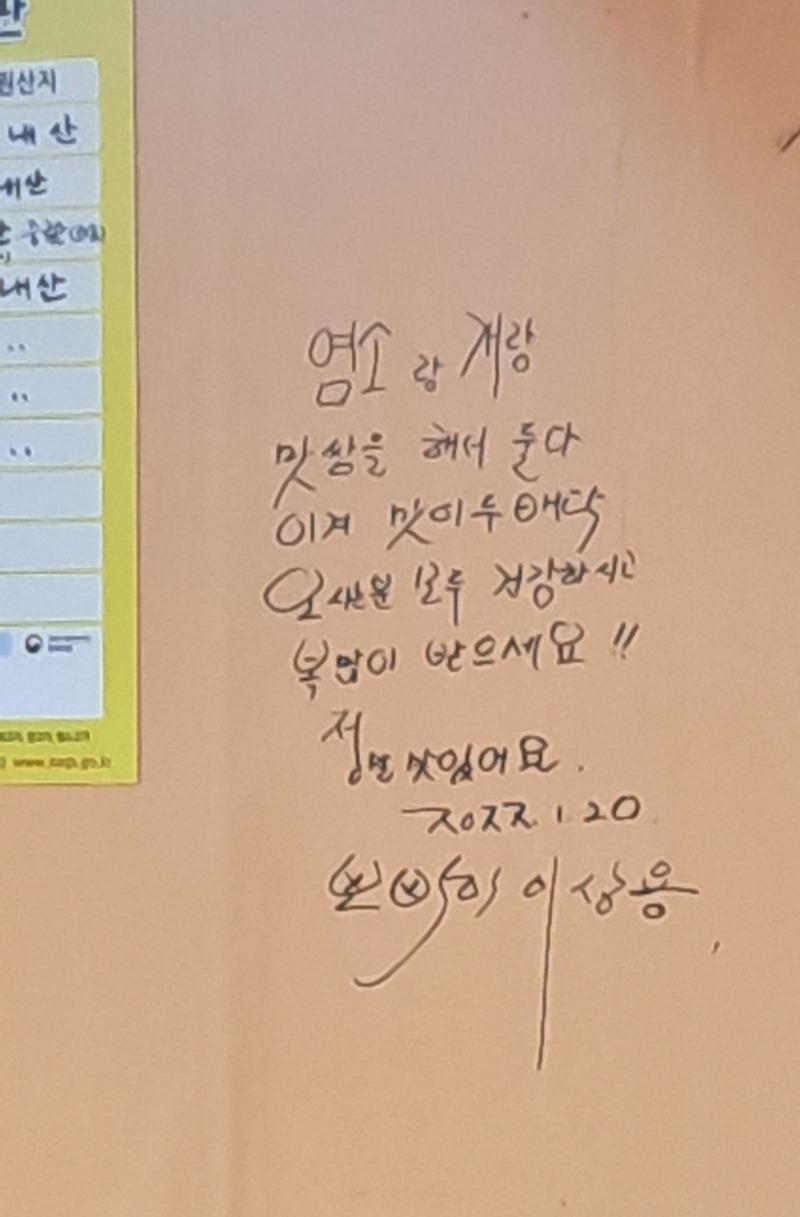 원산지
내 산
내산
내산
염소랑 계랑
맛쌈을 해서 둘다
이겨 맛이두배닥
오시는분 모두 건강하시고
복많이 받으세요 !!
정말 맛있어요.
2022. 1 20
뽀빠이 이상용
www.naqs.go.kr